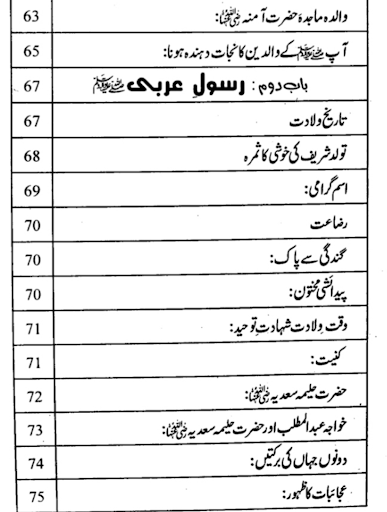 والدہ ماجدہ حضرت آمنہ رضی اللہ عنہا: 63
آپ ﷺ کے والدین کا نجات دہندہ ہونا: 65
باب دوم: رسولِ عربی ﷺ 67
تاریخ ولادت 67
تولد شریف کی خوشی کا ثمرہ 68
اسم گرامی: 69
رضاعت 70
گندگی سے پاک: 70
پیدائشی مختون: 70
وقت ولادت شہادتِ توحید: 71
کنیت: 71
حضرت حلیمہ سعدیہ رضی اللہ عنہا: 72
خواجہ عبدالمطلب اور حضرت حلیمہ سعدیہ رضی اللہ عنہا: 73
دونوں جہاں کی برکتیں: 74
عجائبات کا ظہور: 75